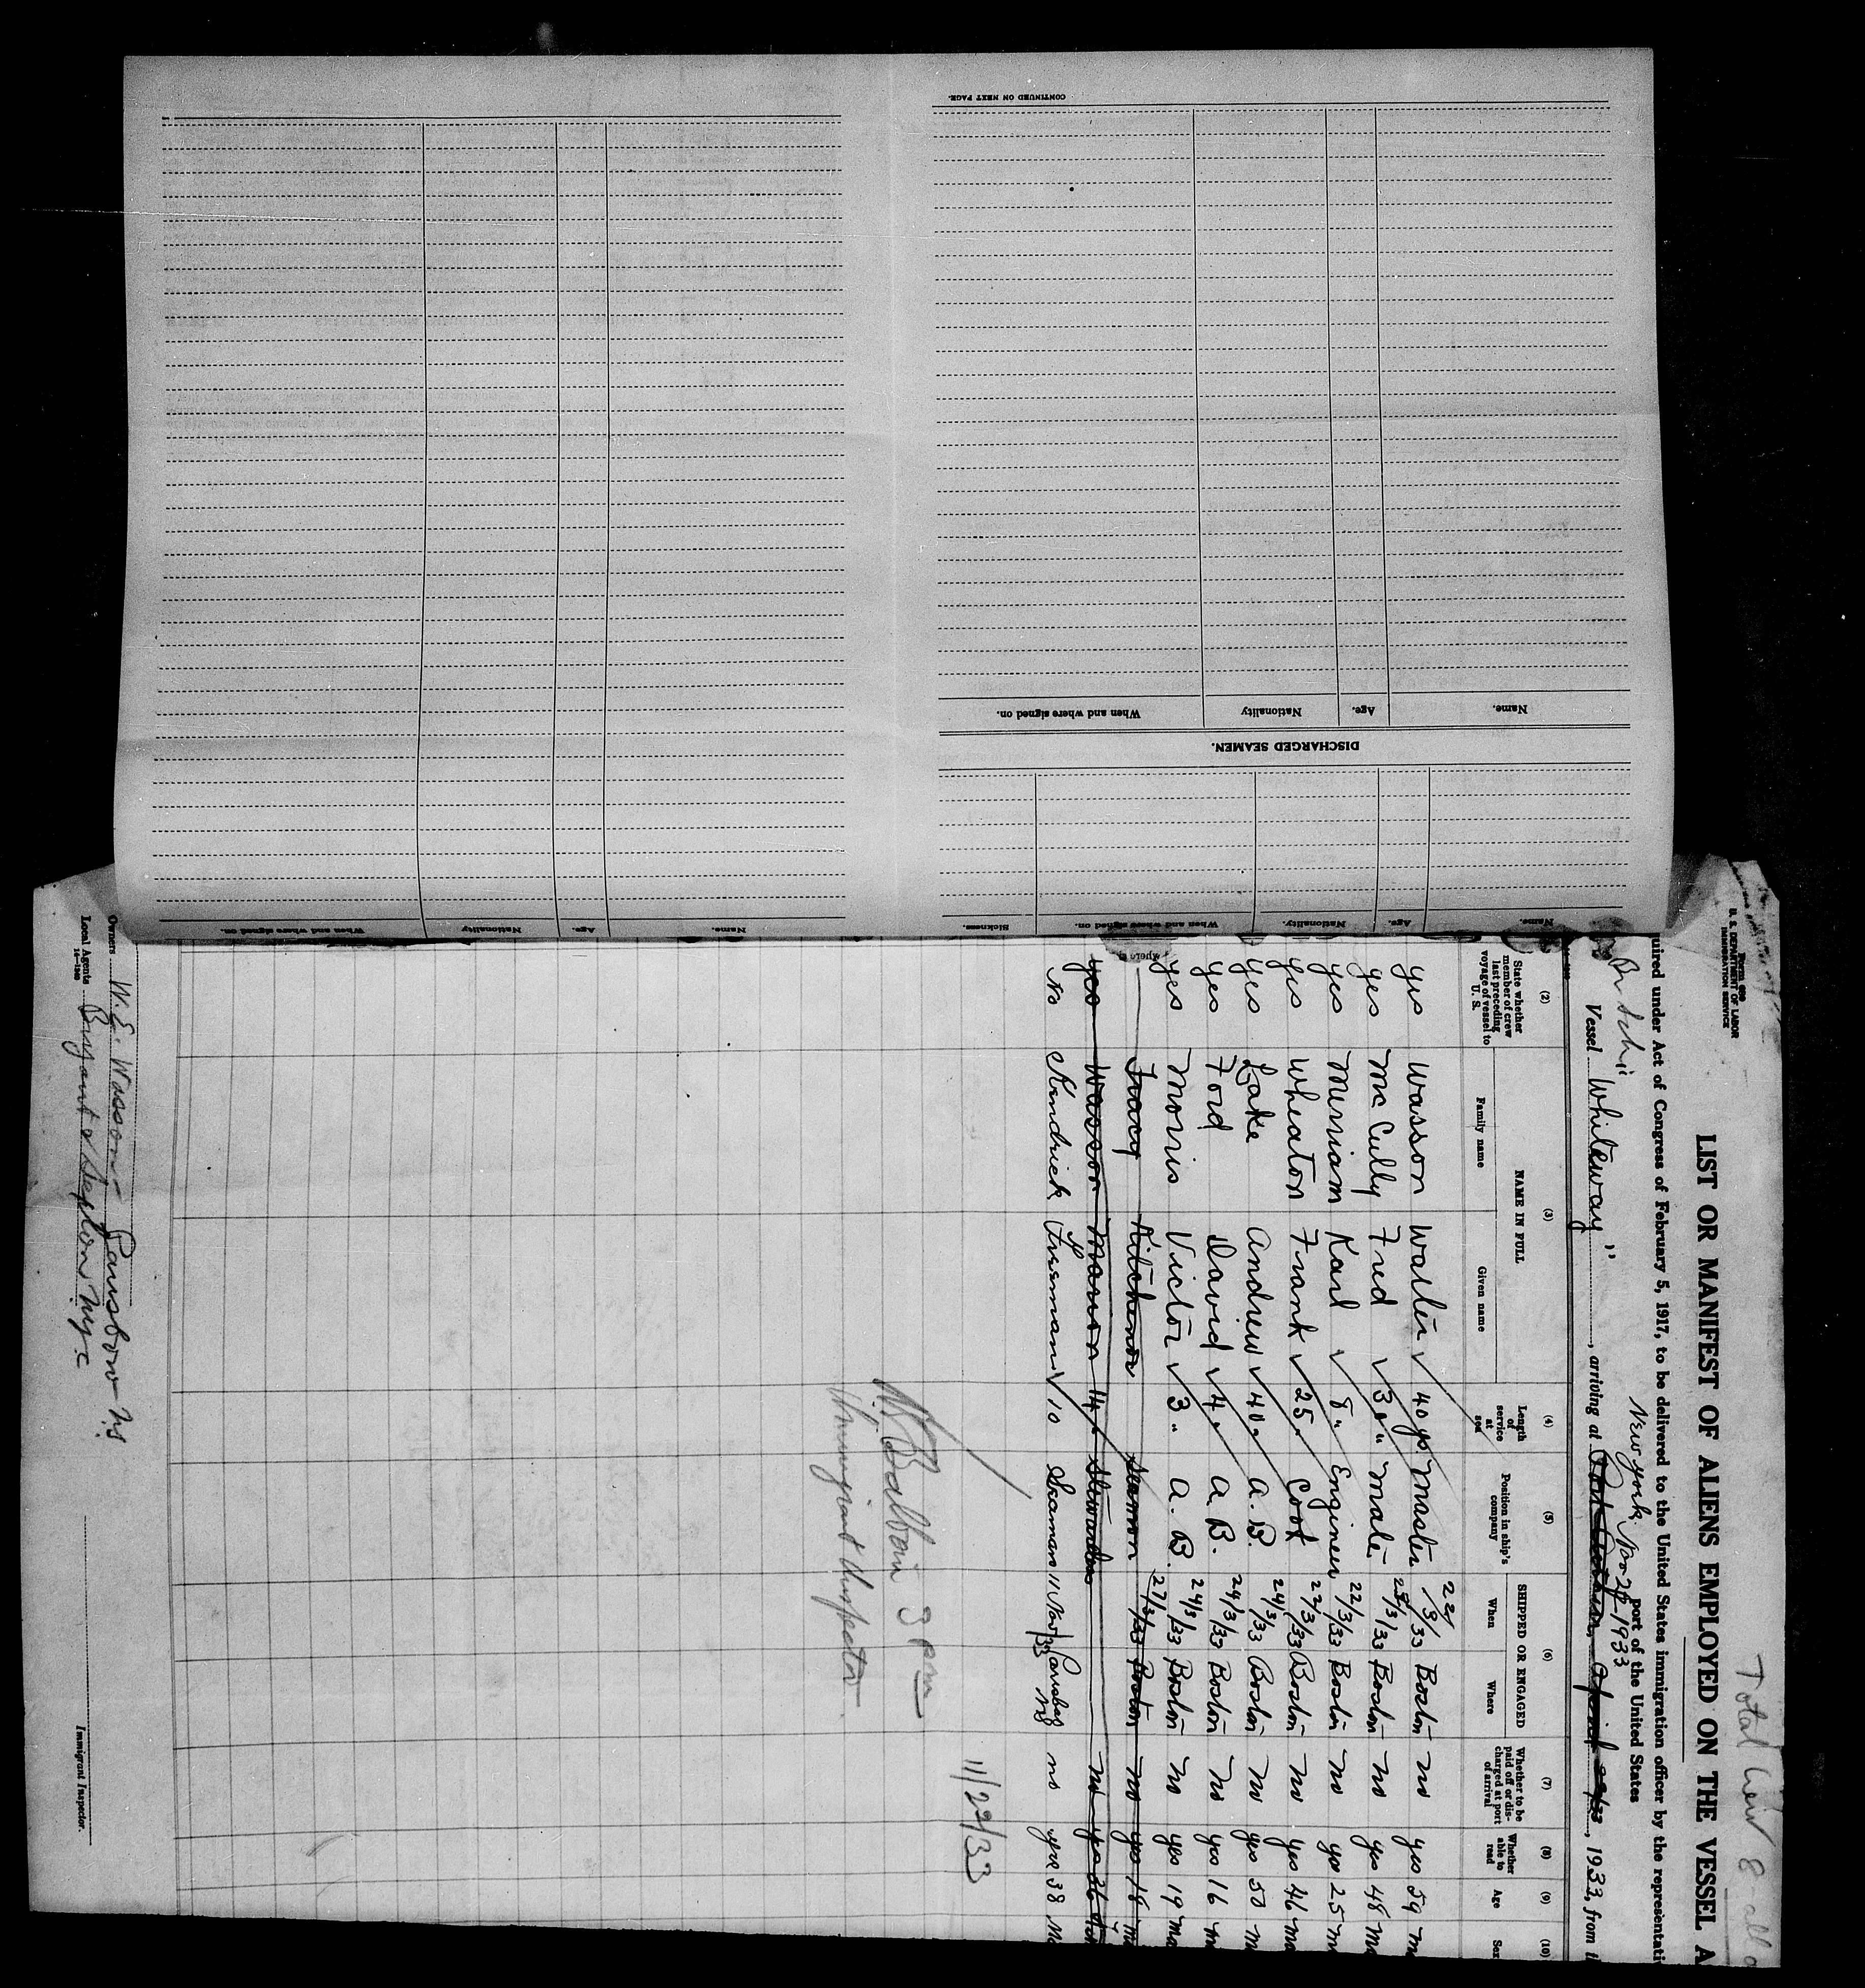 CONTINUED ON NEXT PAGE.
Name. Age. Nationality When and where signed on.
DISCHARGED SEAMEN.
Name. Age. Nationality. When and where signed on. Sickness.
Name. Age. Nationality When and where signed on.
Form 689
U. S. DEPARTMENT OF LABOR
IMMIGRATION SERVICE
Total Crew 8 all
LIST OR MANIFEST OF ALIENS EMPLOYED ON THE VESSEL A
uired under Act of Congress of February 5, 1917, to be delivered to the United States immigration officer by the representati
port of the United States
New york Nov 29-1933
Vessel Whiteway", arriving at , 1933, from
(2) (3) (4) (5) (6) (7) (8) (9) (10)
State whether member of crew last preceding voyage of vessel to U. S.
NAME IN FULL
Family name Given name
Length of service at sea
Position in ship's company
SHIPPED OR ENGAGED
When Where
Whether to be paid off or discharged at port of arrival
Whether able to read
Age
Sex
yes Wasson Walter ✓ 40 ys Master 22/3/33 Boston no yes 59 m
yes McCully Fred ✓ 30 " Mate /3/33 Boston no yes 48 m
yes Merriam Karl ✓ 8 " Engineer 22/3/33 Boston no yes 25 m
yes Wheaton Frank ✓ 25 " Cook 22/3/33 Boston no yes 46 m
yes Lake Andrew ✓ 40 " A.B. 24/3/33 Boston no yes 50 m
yes Ford David ✓ 4 " A.B. 24/3/33 Boston no yes 16 m
yes Morris Victor ✓ 3 " A.B. 24/3/33 Boston no yes 19 ma
Kitchener Seaman 27/3/33 Boston no yes 18 m
yes Wasson Marion 14 Stewardess no yes 36
No Kendrick Freeman ✓ 10 Seaman 11 Nov/33 no yes 38 M
11/29/33
3 pm
Immigrant Inspector
Owners W.E. Wasson Parrsboro N.S.
Local Agents
14—1240
Immigrant Inspector.